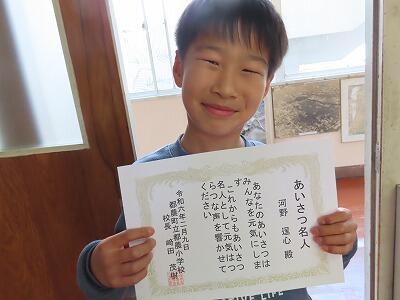 あいさつ名人
河野 逞心 殿
あなたのあいさつは
みんなを元気にしま
す
これからもあいさつ
名人として元気はつ
らつな声を響かせて
ください
令和六年二月九日
都農町立都農小学校
校長 崎田 茂